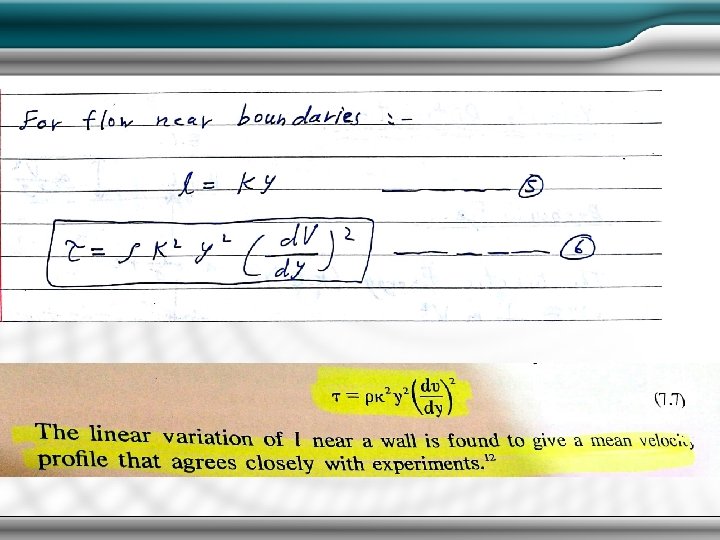 For flow near boundaries :-
l = Ky ———— ⑤
τ = ρ K² y² (dV/dy)² ———— ⑥
τ = ρκ²y²(dv/dy)² (7.7)
The linear variation of l near a wall is found to give a mean velocity
profile that agrees closely with experiments.¹²